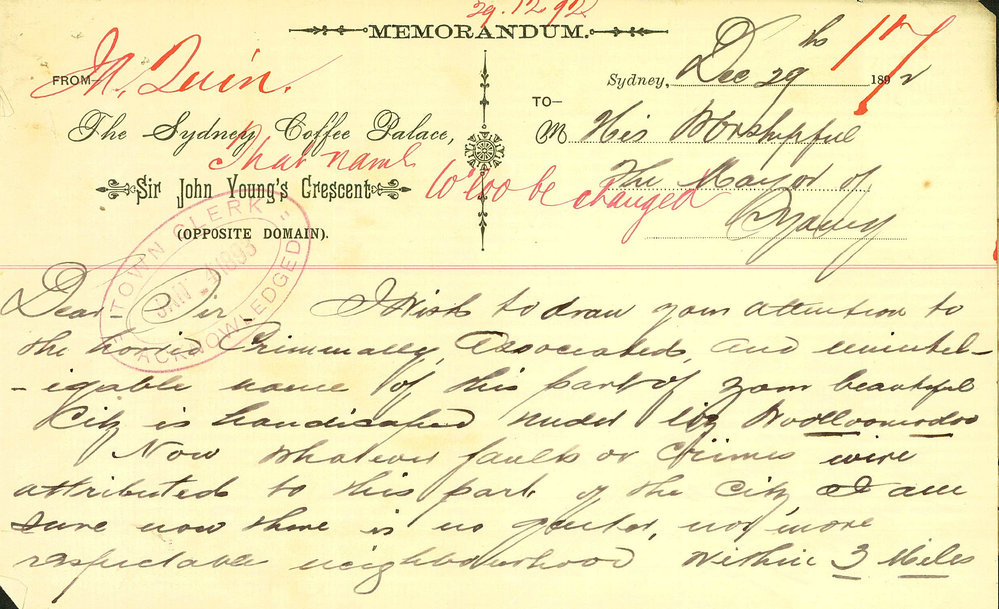 29.12.92
MEMORANDUM.
FROM— M. Quin.
Sydney, Dec 29th 1892
17
TO—
The Sydney Coffee Palace,
M His Worshipful
that name
Sir John Young's Crescent
The Mayor of
W'loo be changed
(OPPOSITE DOMAIN).
Sydney
TOWN CLERK
JAN 4 1893
ACKNOWLEDGED
Dear Sir - I Wish to draw your attention to
the horrid Criminally, Associated, and unintel-
-igable name of this part of your beautiful
City is handicaped under viz Woolloomooloo
Now whatever faults or Crimes were
attributed to this part of the City I am
sure now there is no quieter, nor more
respectable neighbourhood within 3 Miles